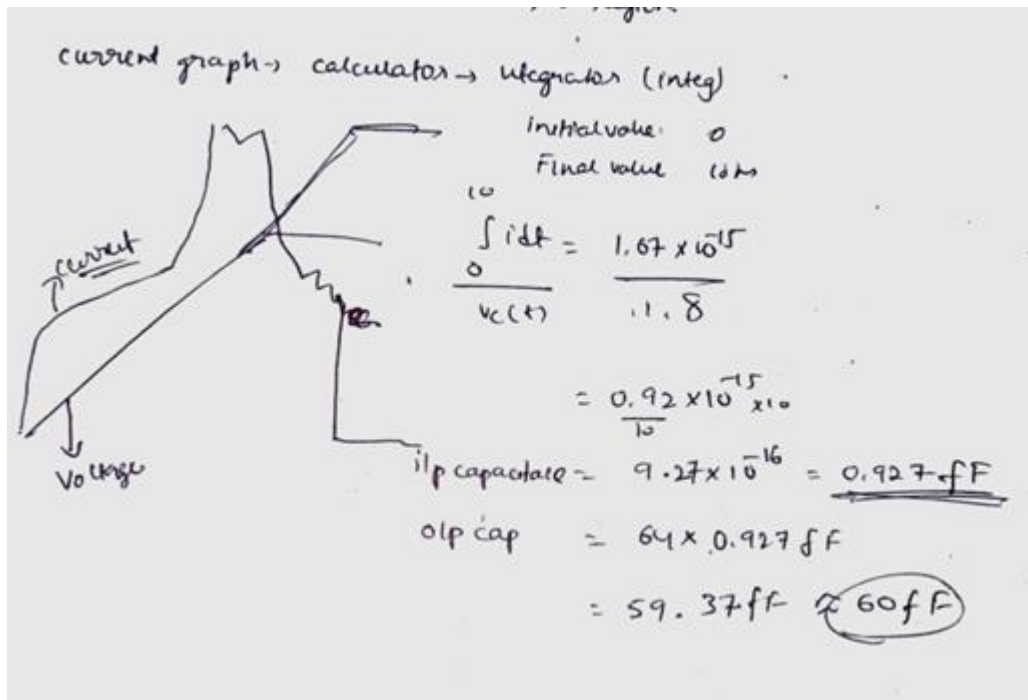 current graph → calculator → integrator (integ)
initial value 0
Final value 10ns
current
10
∫ idt = 1.67 × 10^-15
0
vc(t) 1.8
= 0.92 × 10^-15 × 10
10
Voltage
i/p capacitace = 9.27 × 10^-16 = 0.927 fF
o/p cap = 64 × 0.927 fF
= 59.37 fF ≈ 60 fF